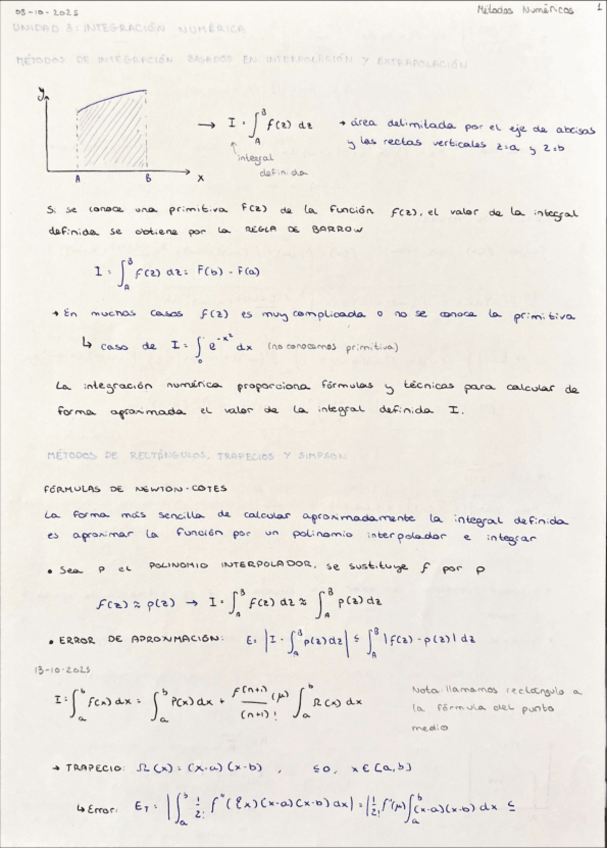 09-10-2025 Métodos Numéricos 1
UNIDAD 3: INTEGRACIÓN NUMÉRICA
MÉTODOS DE INTEGRACIÓN BASADOS EN INTERPOLACIÓN Y EXTRAPOLACIÓN
y
→ I = ∫_A^B f(z) dz → área delimitada por el eje de abcisas
y las rectas verticales z=a y z=b
integral
definida
A B x
Si se conoce una primitiva F(z) de la función f(z), el valor de la integral
definida se obtiene por la REGLA DE BARROW
I = ∫_A^B f(z) dz = F(b) - F(a)
→ En muchos casos f(z) es muy complicada o no se conoce la primitiva
↳ caso de I = ∫_0 e^{-x²} dx (no conocemos primitiva)
La integración numérica proporciona fórmulas y técnicas para calcular de
forma aproximada el valor de la integral definida I.
MÉTODOS DE RECTÁNGULOS, TRAPECIOS Y SIMPSON
FÓRMULAS DE NEWTON-COTES
La forma más sencilla de calcular aproximadamente la integral definida
es aproximar la función por un polinomio interpolador e integrar
• Sea p el POLINOMIO INTERPOLADOR, se sustituye f por p
f(z) ≈ p(z) → I = ∫_A^B f(z) dz ≈ ∫_A^B p(z) dz
• ERROR DE APROXIMACIÓN: E = |I - ∫_A^B p(z) dz| ≤ ∫_A^B |f(z) - p(z)| dz
13-10-2025
I = ∫_a^b f(x) dx = ∫_a^b P(x) dx + f^(n+1)(μ)/(n+1)! ∫_a^b Ω(x) dx
Nota: llamamos rectángulo a
la fórmula del punto
medio
→ TRAPECIO: Ω(x) = (x-a)(x-b) , ≤0, x∈[a,b]
↳ Error: E_T = |∫_a^b 1/2! f''(ξx)(x-a)(x-b) dx| = |1/2! f''(μ) ∫_a^b (x-a)(x-b) dx ≤